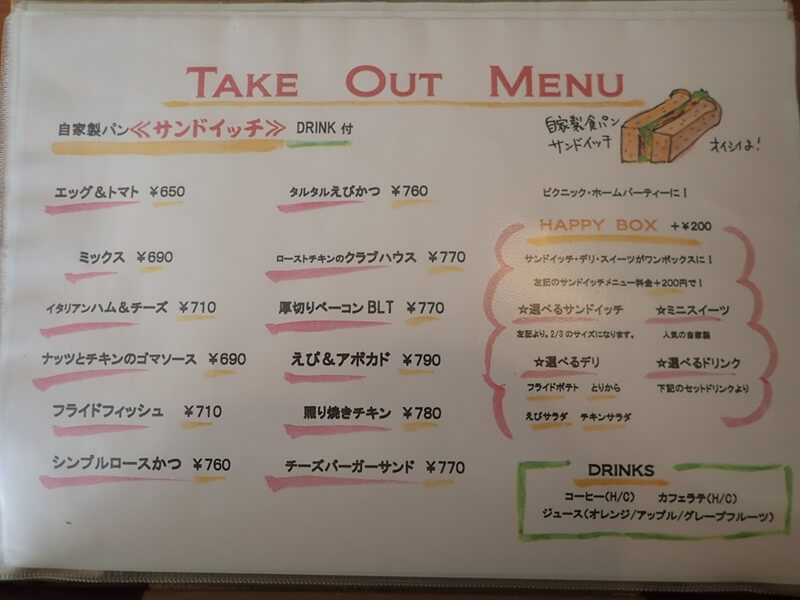 TAKE OUT MENU
自家製パン≪サンドイッチ≫ DRINK 付
エッグ＆トマト ￥650
ミックス ￥690
イタリアンハム＆チーズ ￥710
ナッツとチキンのゴマソース ￥690
フライドフィッシュ ￥710
シンプルロースかつ ￥760
タルタルえびかつ ￥760
ローストチキンのクラブハウス ￥770
厚切りベーコン BLT ￥770
えび＆アボカド ￥790
照り焼きチキン ￥780
チーズバーガーサンド ￥770
自家製食パン
サンドイッチ
オイシイよ！
ピクニック・ホームパーティーに！
HAPPY BOX ＋￥200
サンドイッチ・デリ・スイーツがワンボックスに！
左記のサンドイッチメニュー料金＋200円で！
☆選べるサンドイッチ ☆ミニスイーツ
左記より。2/3のサイズになります。 人気の自家製
☆選べるデリ ☆選べるドリンク
フライドポテト とりから 下記のセットドリンクより
えびサラダ チキンサラダ
DRINKS
コーヒー(H/C) カフェラテ(H/C)
ジュース(オレンジ/アップル/グレープフルーツ)